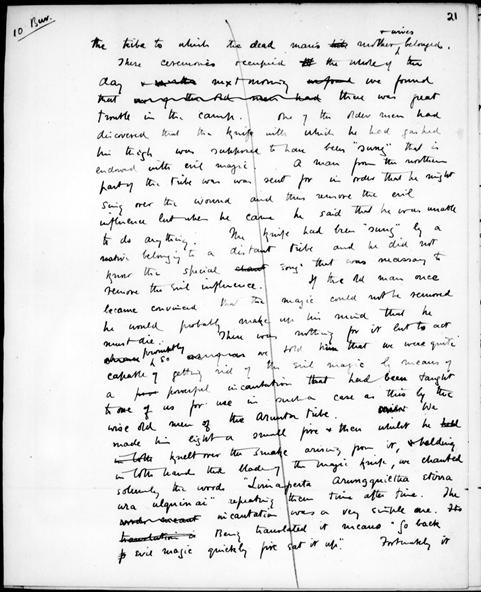 10 Bur.
21
& wives
the tribe to which the dead man's mother belonged.
These ceremonies occupied the whole of the
day next morning we found
that there was great
trouble in the camp. One of the older men had
discovered that the knife with which he had gashed
his thigh was supposed to have been "sung" that is
endowed with evil magic. A man from the northern
part of the tribe was was sent for in order that he might
sing over the wound and thus remove the evil
influence but when he came he said that he was unable
to do anything. The knife had been "sung" by a
native belonging to a distant tribe and he did not
know the special chant song that was necessary to
remove the evil influence. If the old man once
became convinced that the magic could not be removed
he would probably make up his mind that he
must die. There was nothing for it but to act
promptly so we told him that we were quite
capable of getting rid of the evil magic by means of
a powerful incantation that had been taught
to one of us for use in such a case as this by the
wise old men of the Arunta tribe. We
made him light a small fire & then whilst he
knelt over the smoke arising from it, & holding
in both hand the blade of the magic knife, we chanted
solemnly the words
repeating them time after time. The
incantation was a very simple one. Its
translation is Being translated it means "go back
evil magic quickly fire eat it up". Fortunately it